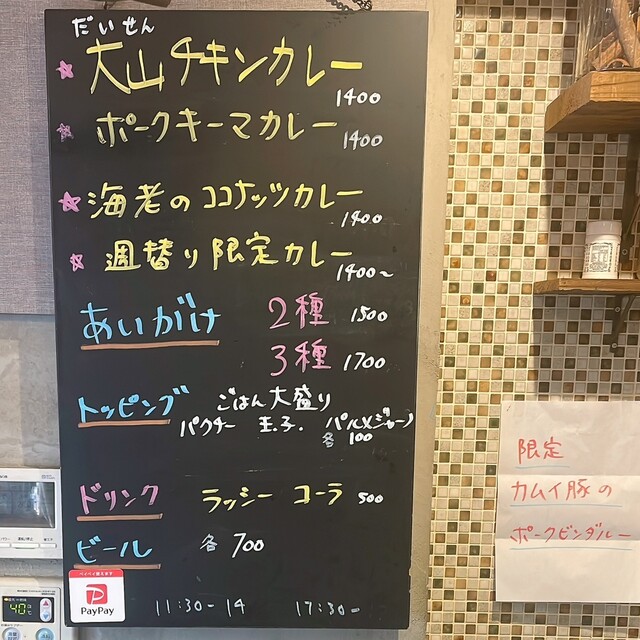 だいせん
大山チキンカレー
1400
ポークキーマカレー 1400
海老のココナッツカレー
1400
週替り限定カレー
1400~
あいがけ 2種 1500
3種 1700
トッピング ごはん大盛り
パクチー 玉子. パルメジャーノ
各100
ドリンク ラッシー コーラ 500
ビール 各 700
PayPay
11:30-14 17:30-
限定
カムイ豚の
ポークビンダルー
40